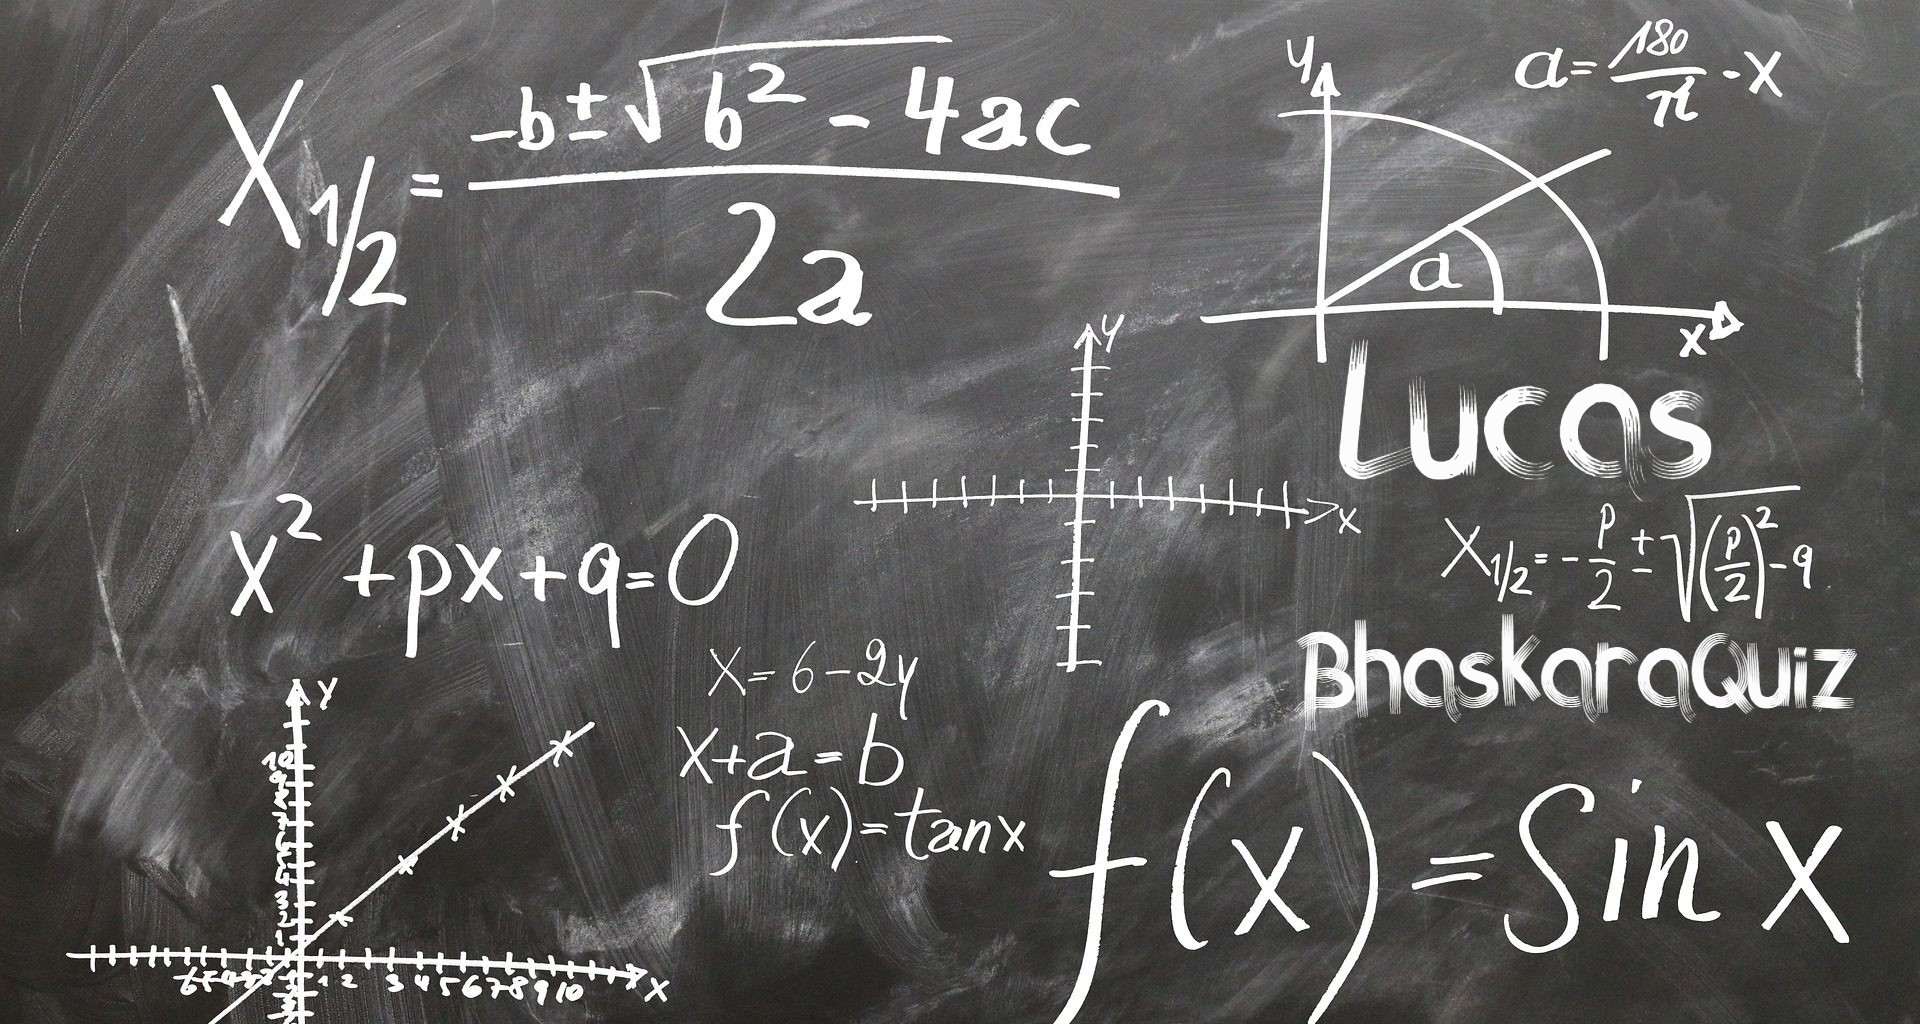 X1/2 = -b±√b² - 4ac / 2a
y
a = 180/π · x
a
x
y
x
Lucas
x² + px + q = 0
X1/2 = - p/2 ± √(p/2)² - q
BhaskaraQuiz
x = 6 - 2y
x + a = b
f(x) = tan x
f(x) = Sin x
y
10
1 2 3 4 5 6 7 8 9 10
x